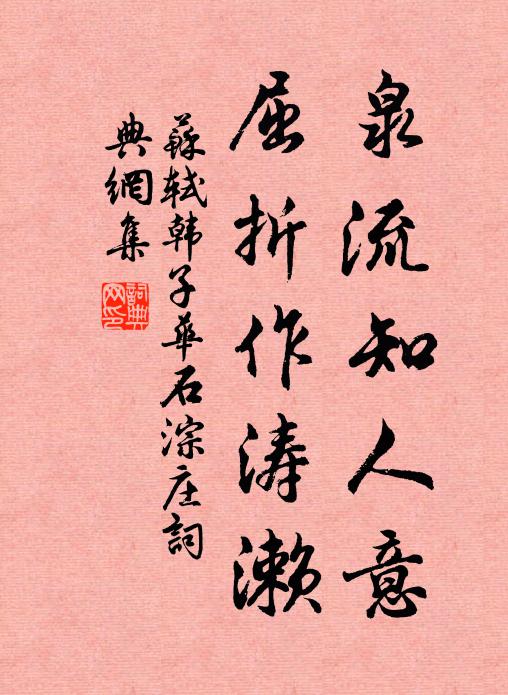 泉流知人意
屈折作涛濑
蘇軾韩子華石淙庄詞
典網集
詞典网印